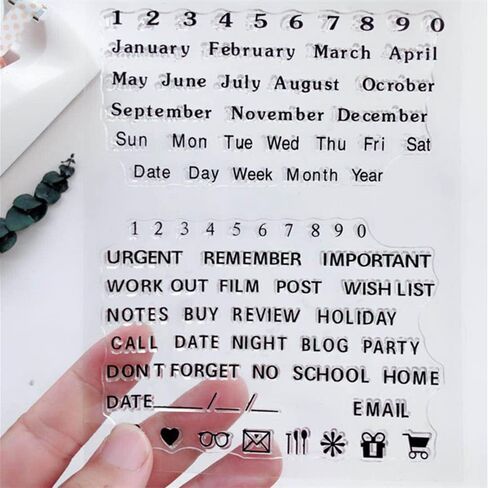 1 2 3 4 5 6 7 8 9 0
January February March April
May June July August Ocrober
September November December
Sun Mon Tue Wed Thu Fri Sat
Date Day Week Month Year
1 2 3 4 5 6 7 8 9 0
URGENT REMEMBER IMPORTANT
WORK OUT FILM POST WISH LIST
NOTES BUY REVIEW HOLIDAY
CALL DATE NIGHT BLOG PARTY
DON T FORGET NO SCHOOL HOME
DATE____/__/__ EMAIL